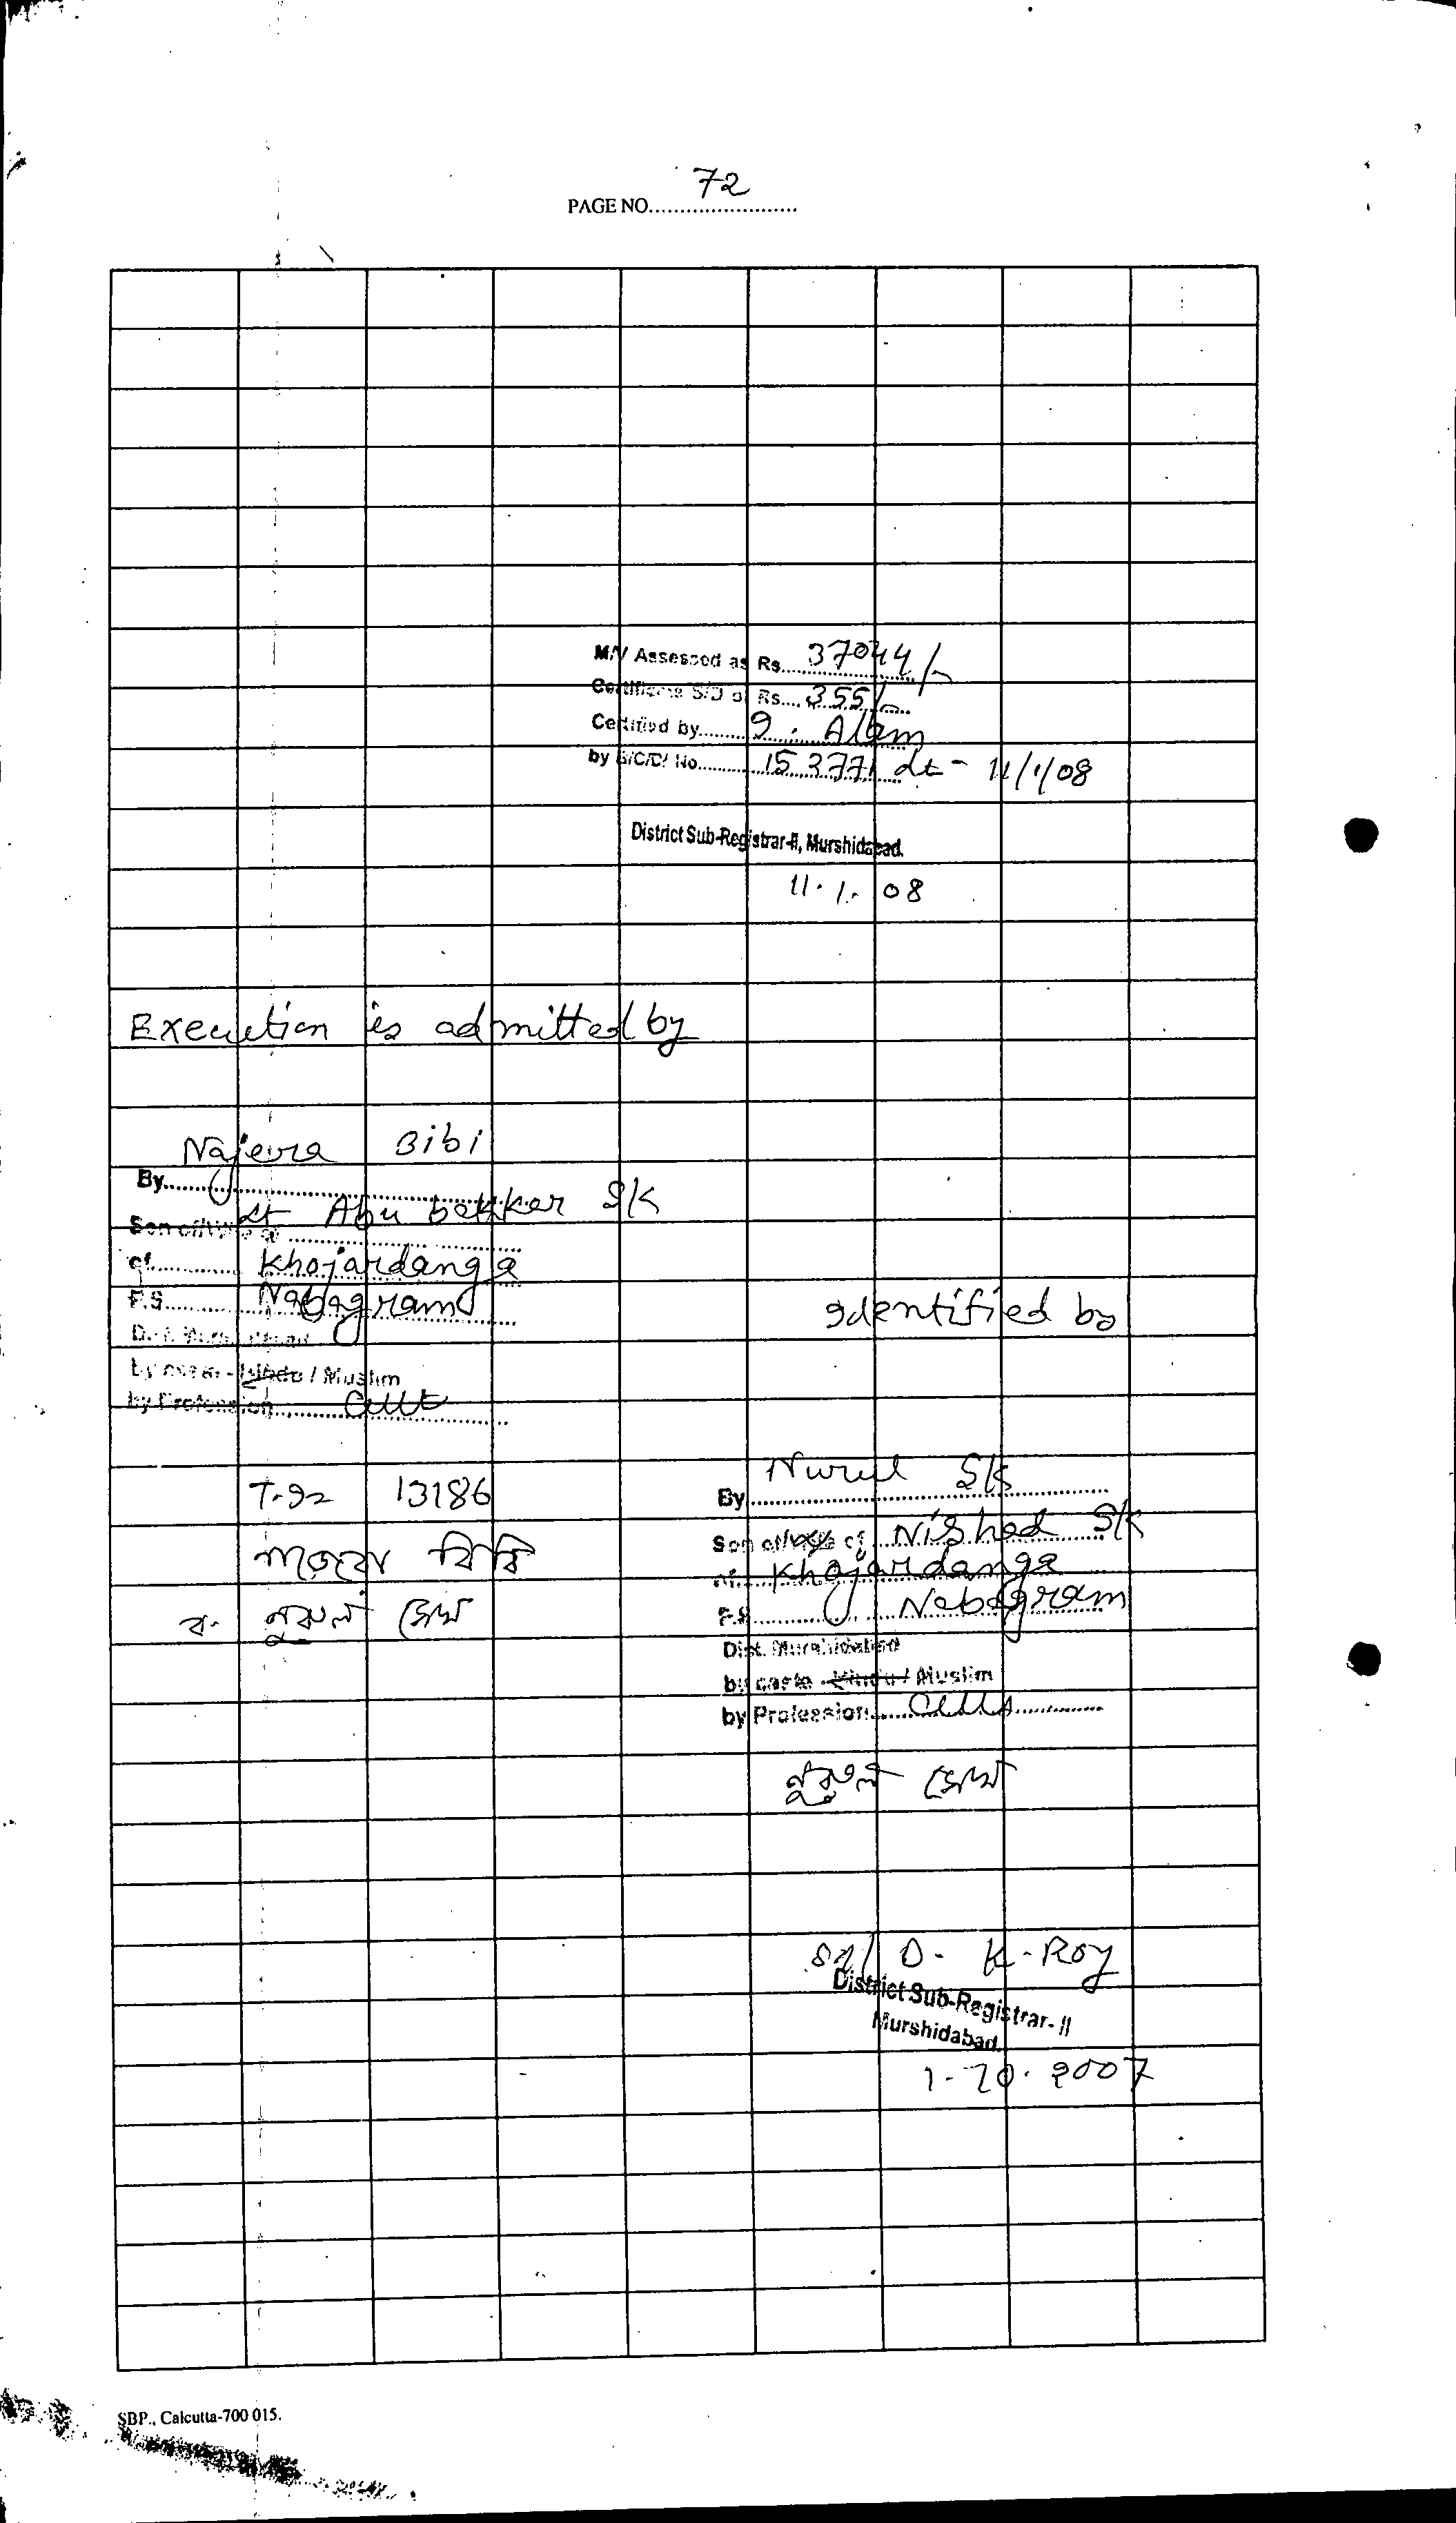 72
PAGE NO........................
M/V Assessed as Rs. 37044/-
Certificate S/D of Rs. 355/-
Certified by J. Alam
by B/C/D/ No. 153771 dt- 11/1/08
District Sub-Registrar-II, Murshidabad.
11.1.08
Execution is admitted by
Najera Bibi
By
Son of/Wife of Lt Abu bakker SK
of Khojardanga
P.S. Nabagram
Dist. Murshidabad
by caste - Hindu / Muslim
by Profession Cult
Identified by
T-92 13186
বিবি
ব. নুরুল সেখ
By Nurul SK
Son of/Wife of Nished SK
of Khojardanga
P.S. Nabagram
Dist. Murshidabad
by caste - Hindu / Muslim
by Profession
নুরুল সেখ
Sd/ D. K. Roy
District Sub-Registrar-II
Murshidabad.
2007
SBP., Calcutta-700 015.